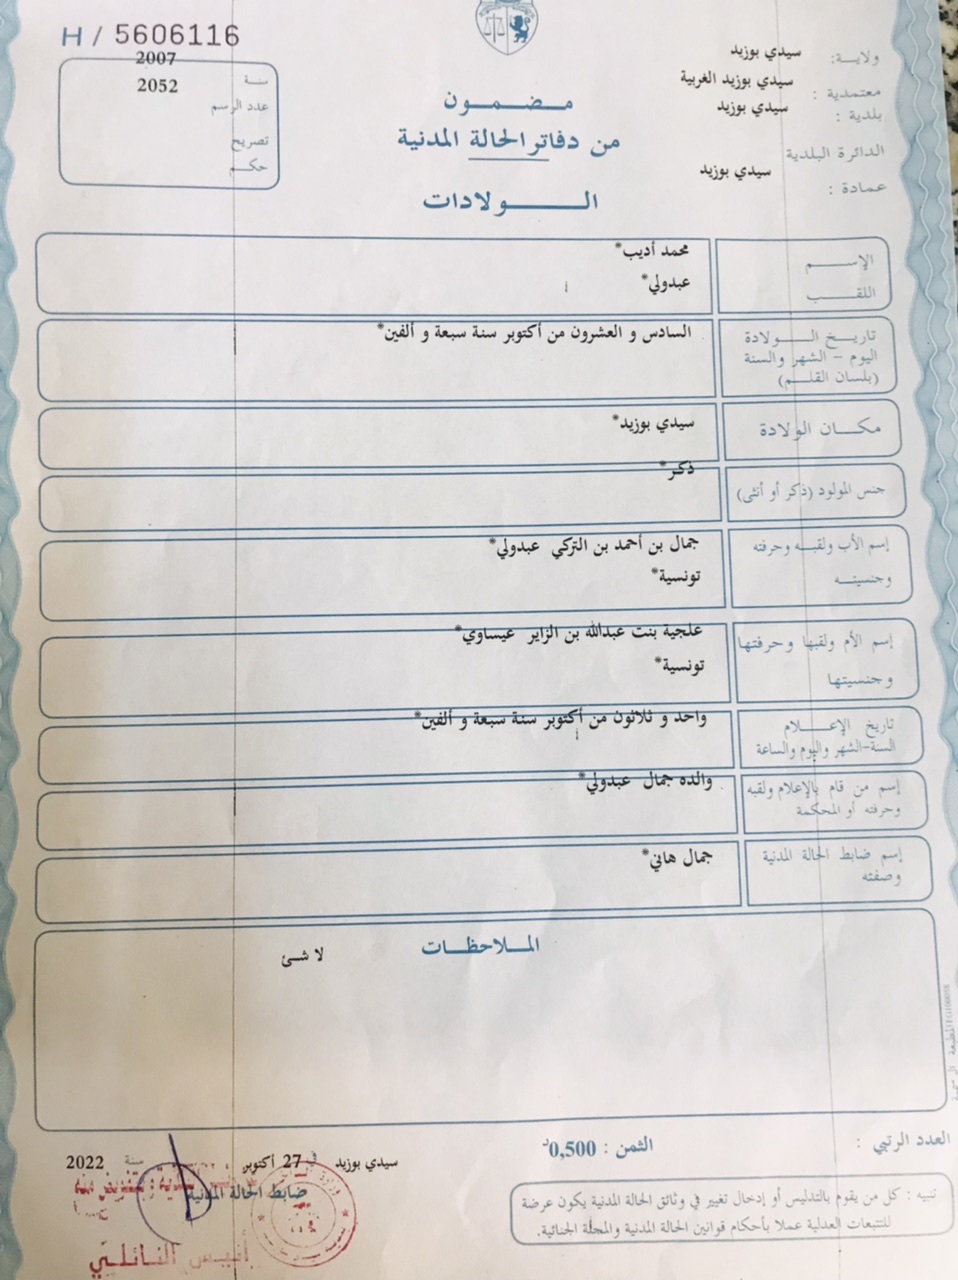 H / 5606116
سنة 2007
عدد الرسم 2052
تصريح
حكم
ولاية: سيدي بوزيد
معتمدية : سيدي بوزيد الغربية
بلدية : سيدي بوزيد
الدائرة البلدية
عمادة : سيدي بوزيد
مضمون
من دفاتر الحالة المدنية
الولادات
الإسم محمد أديب*
اللقب عبدولي*
تاريخ الولادة السادس و العشرون من أكتوبر سنة سبعة و ألفين*
اليوم - الشهر والسنة
(بلسان القلم)
مكان الولادة سيدي بوزيد*
جنس المولود (ذكر أو أنثى) ذكر*
إسم الأب ولقبه وحرفته جمال بن أحمد بن التركي عبدولي*
وجنسيته تونسية*
إسم الأم ولقبها وحرفتها علجية بنت عبدالله بن الزاير عيساوي*
وجنسيتها تونسية*
تاريخ الإعلام واحد و ثلاثون من أكتوبر سنة سبعة و ألفين*
السنة-الشهر واليوم والساعة
إسم من قام بالإعلام ولقبه والده جمال عبدولي*
وحرفته أو المحكمة
إسم ضابط الحالة المدنية جمال هاني*
وصفته
الملاحظات
لا شئ
العدد الرتبي :
الثمن : 0,500د
سيدي بوزيد في 27 أكتوبر سنة 2022
ضابط الحالة المدنية
أنيس النائلي
تنبيه : كل من يقوم بالتدليس أو إدخال تغيير في وثائق الحالة المدنية يكون عرضة
للتتبعات العدلية عملا بأحكام قوانين الحالة المدنية والمجلة الجنائية.